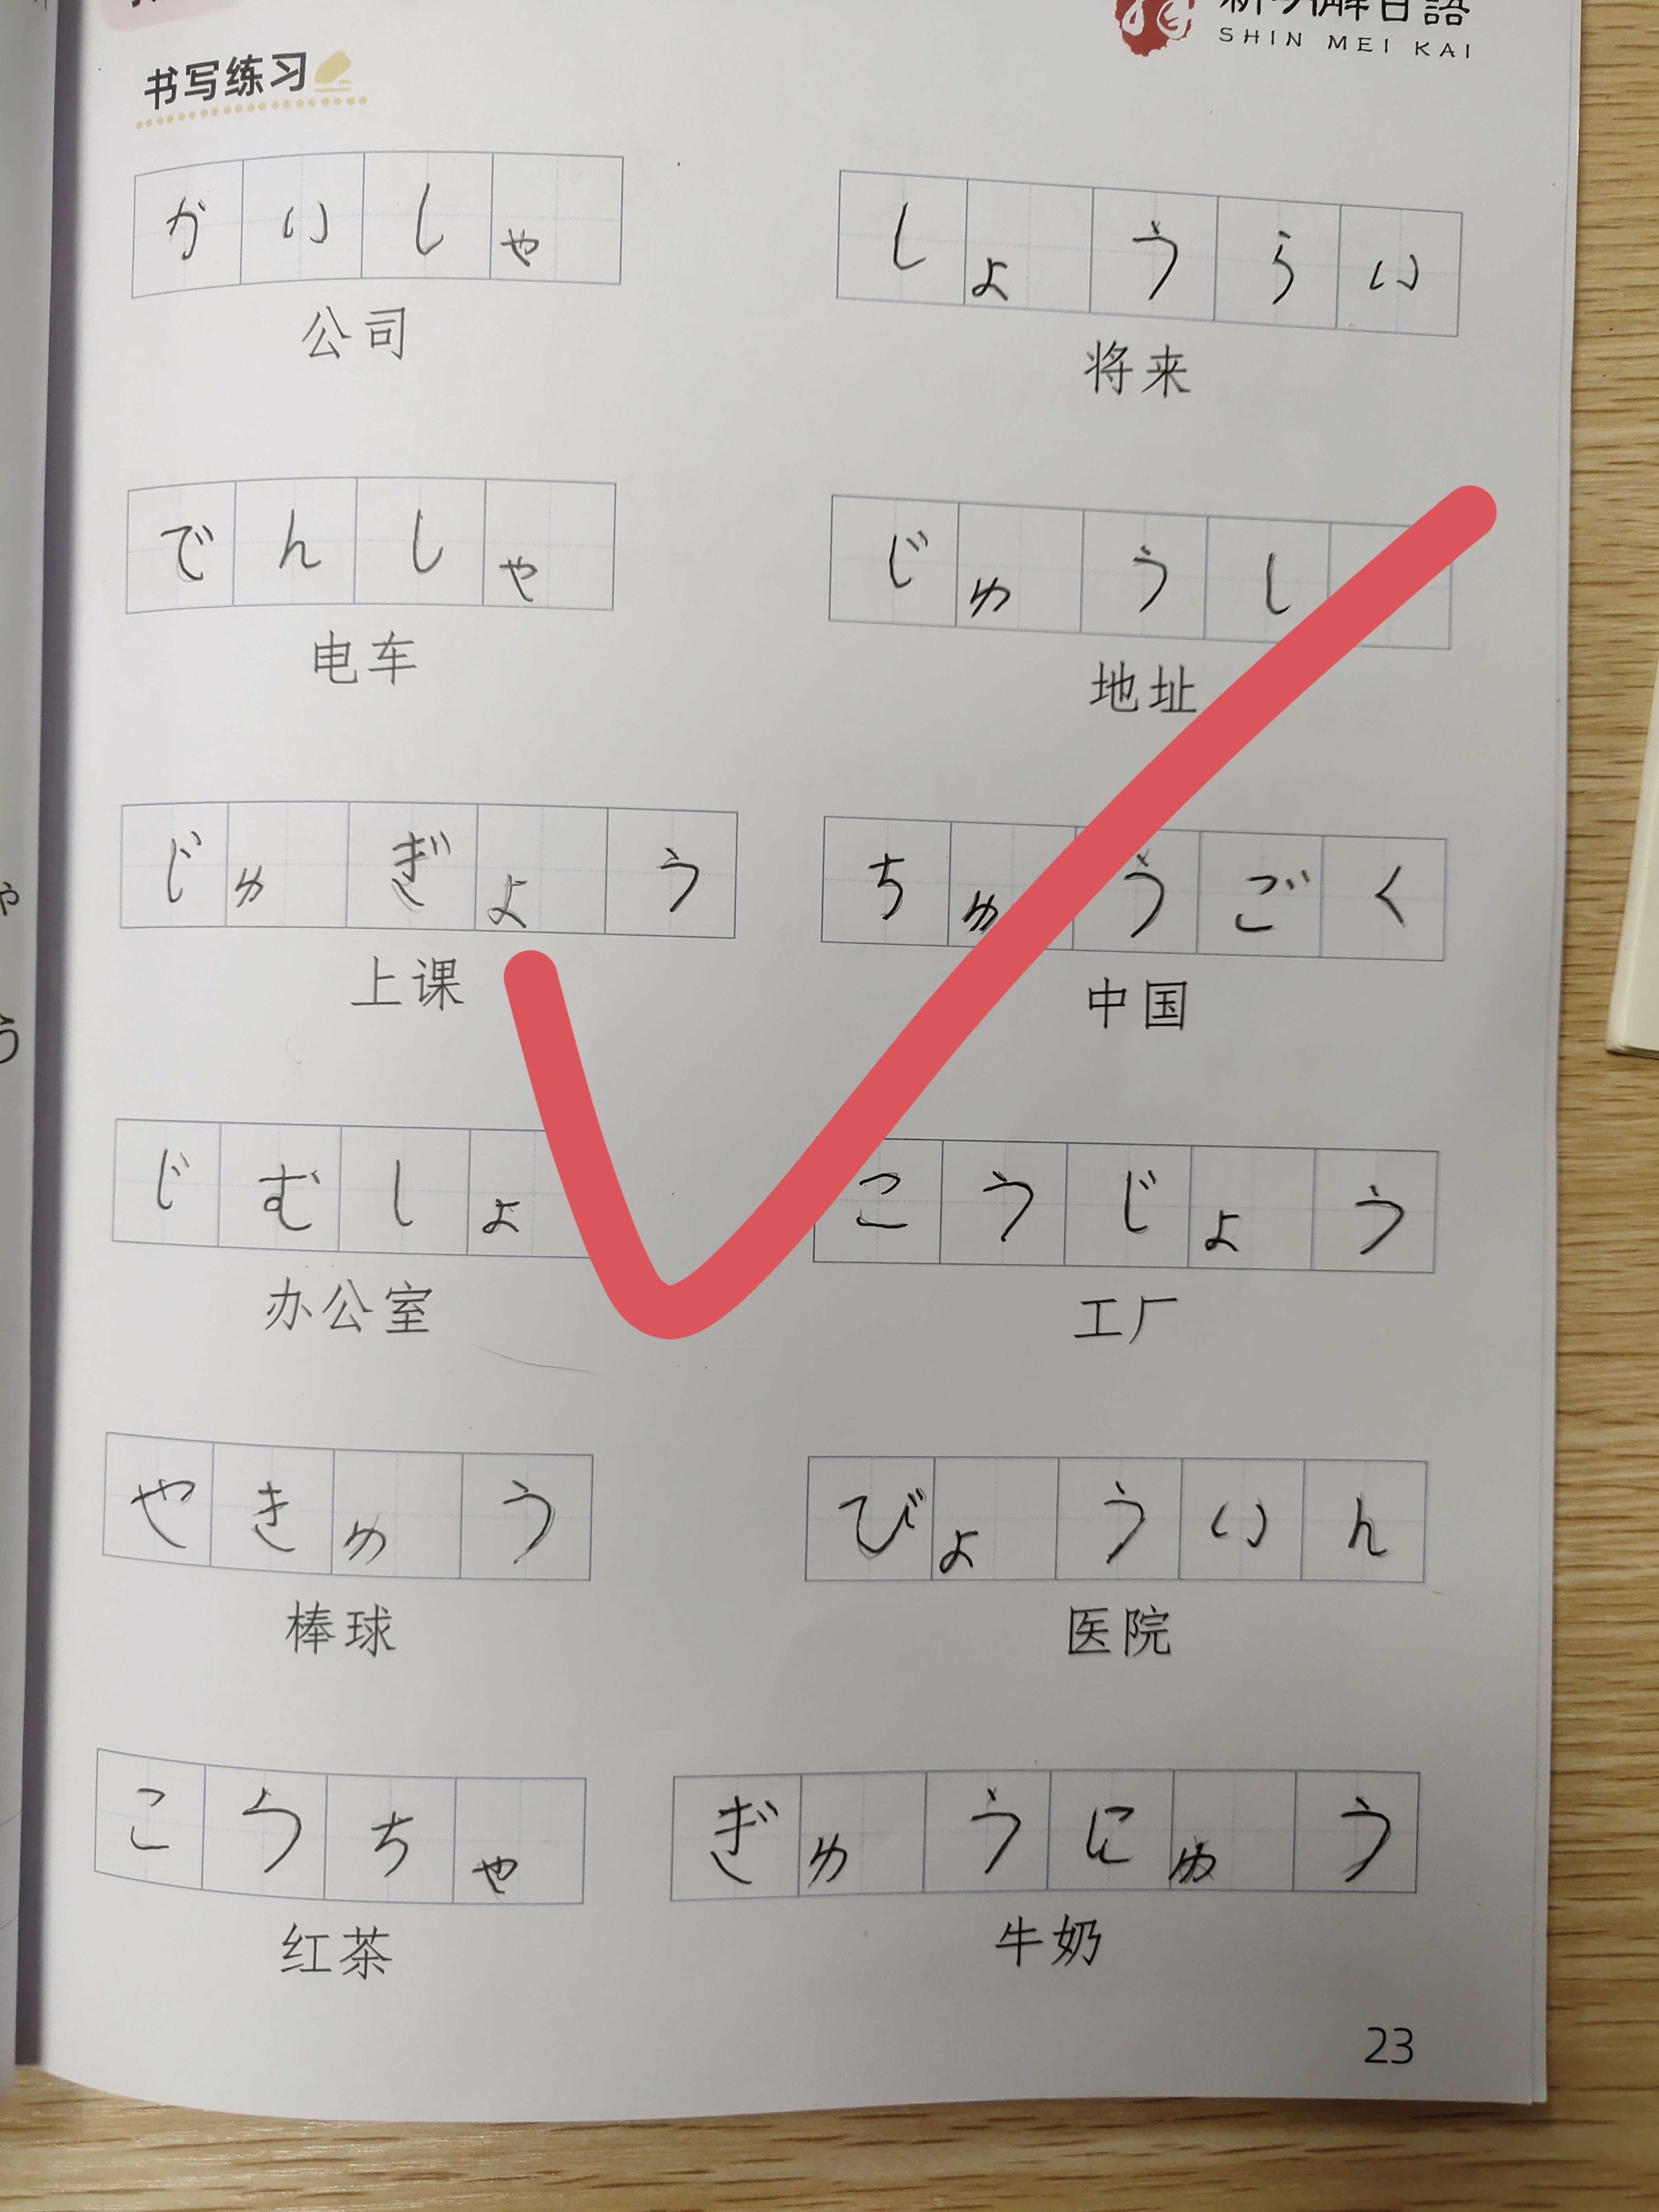 书写练习
新明解日語
SHIN MEI KAI
かいしゃ
公司
しょうらい
将来
でんしゃ
电车
じゅうし
地址
じゅぎょう
上课
ちゅうごく
中国
じむしょ
办公室
こうじょう
工厂
やきゅう
棒球
びょういん
医院
こうちゃ
红茶
ぎゅうにゅう
牛奶
23